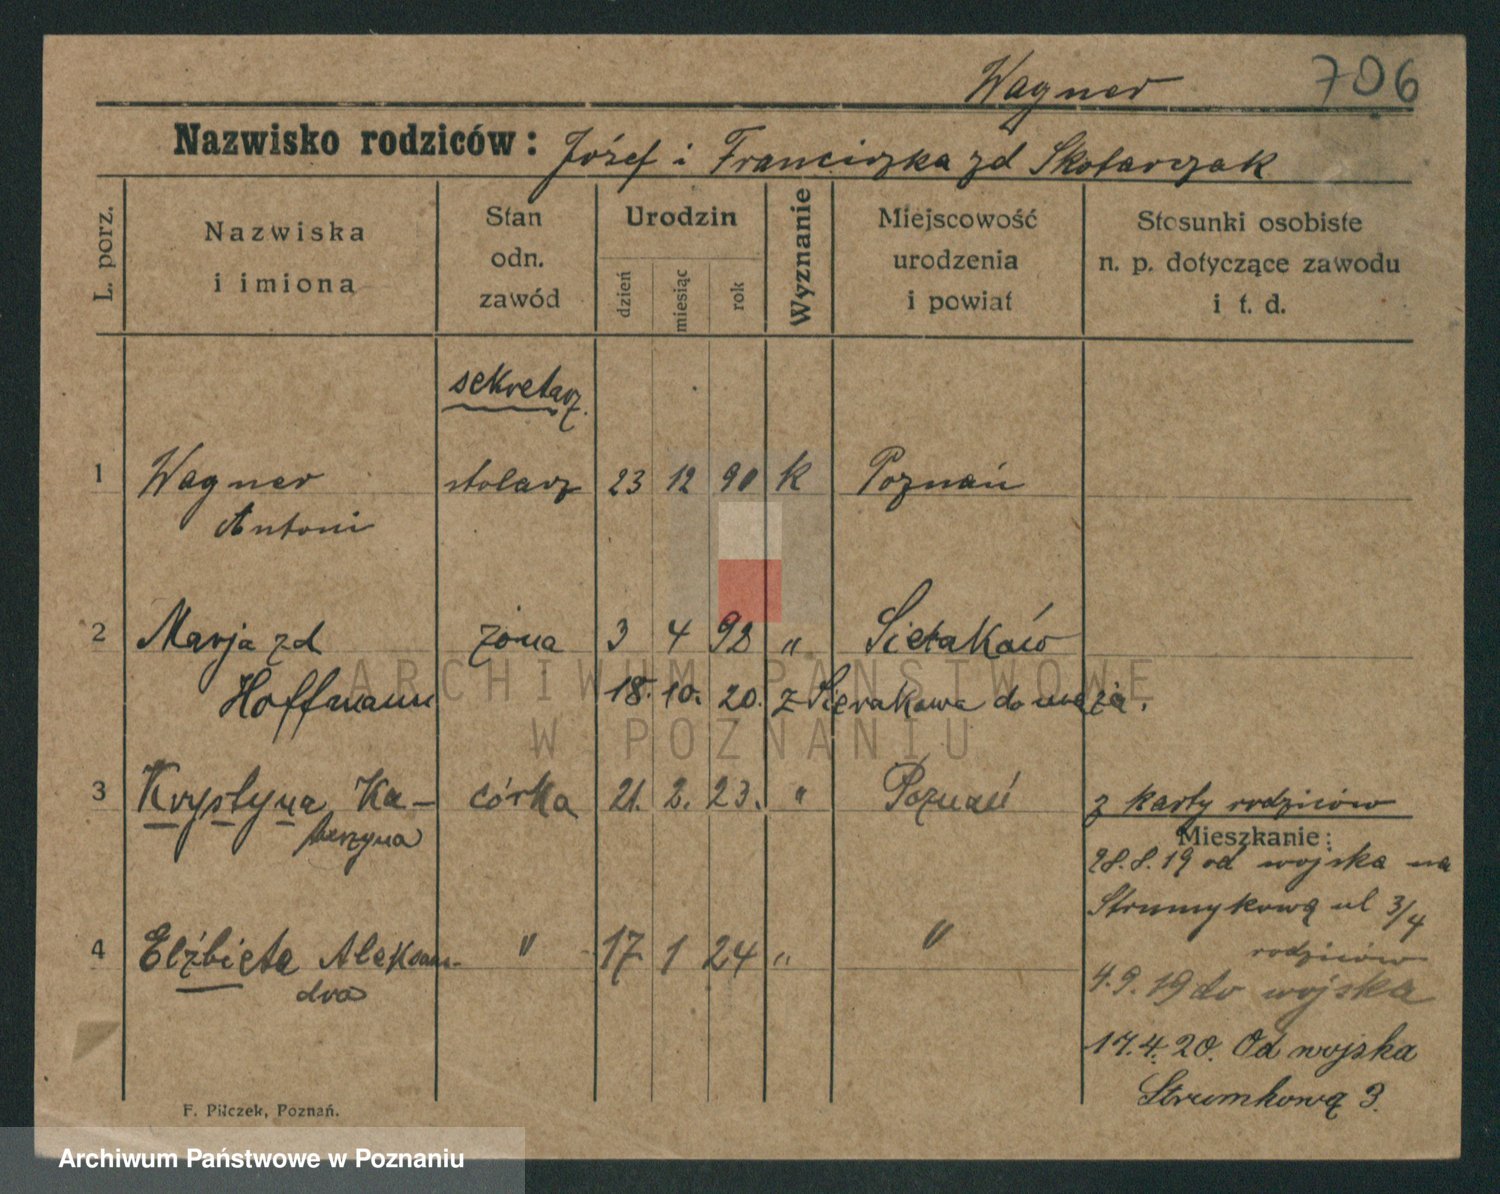 Wagner 706
Nazwisko rodziców: Józef i Franciszka zd Skotarczak
L. porz.
Nazwiska
i imiona
Stan
odn.
zawód
Urodzin
dzień
miesiąc
rok
Wyznanie
Miejscowość
urodzenia
i powiat
Stosunki osobiste
n. p. dotyczące zawodu
i t. d.
sekretarz.
1 Wagner stolarz 23 12 90 k Poznań
Antoni
2 Marja zd żona 3 4 98 " Sieraków
Hoffmann 18. 10. 20. z Sierakowa do męża.
ARCHIWUM PAŃSTWOWE
W POZNANIU
3 Krystyna Ka- córka 21. 2. 23. " Poznań z karty rodziców
tarzyna
Mieszkanie:
28.8.19 od wojska na
Strumykową ul 3/4
rodziców
4 Elżbieta Aleksan- " 17 1 24 " "
dra
4.9.19 do wojska
17.4.20. Od wojska
Strumkową 3.
F. Pilczek, Poznań.
Archiwum Państwowe w Poznaniu